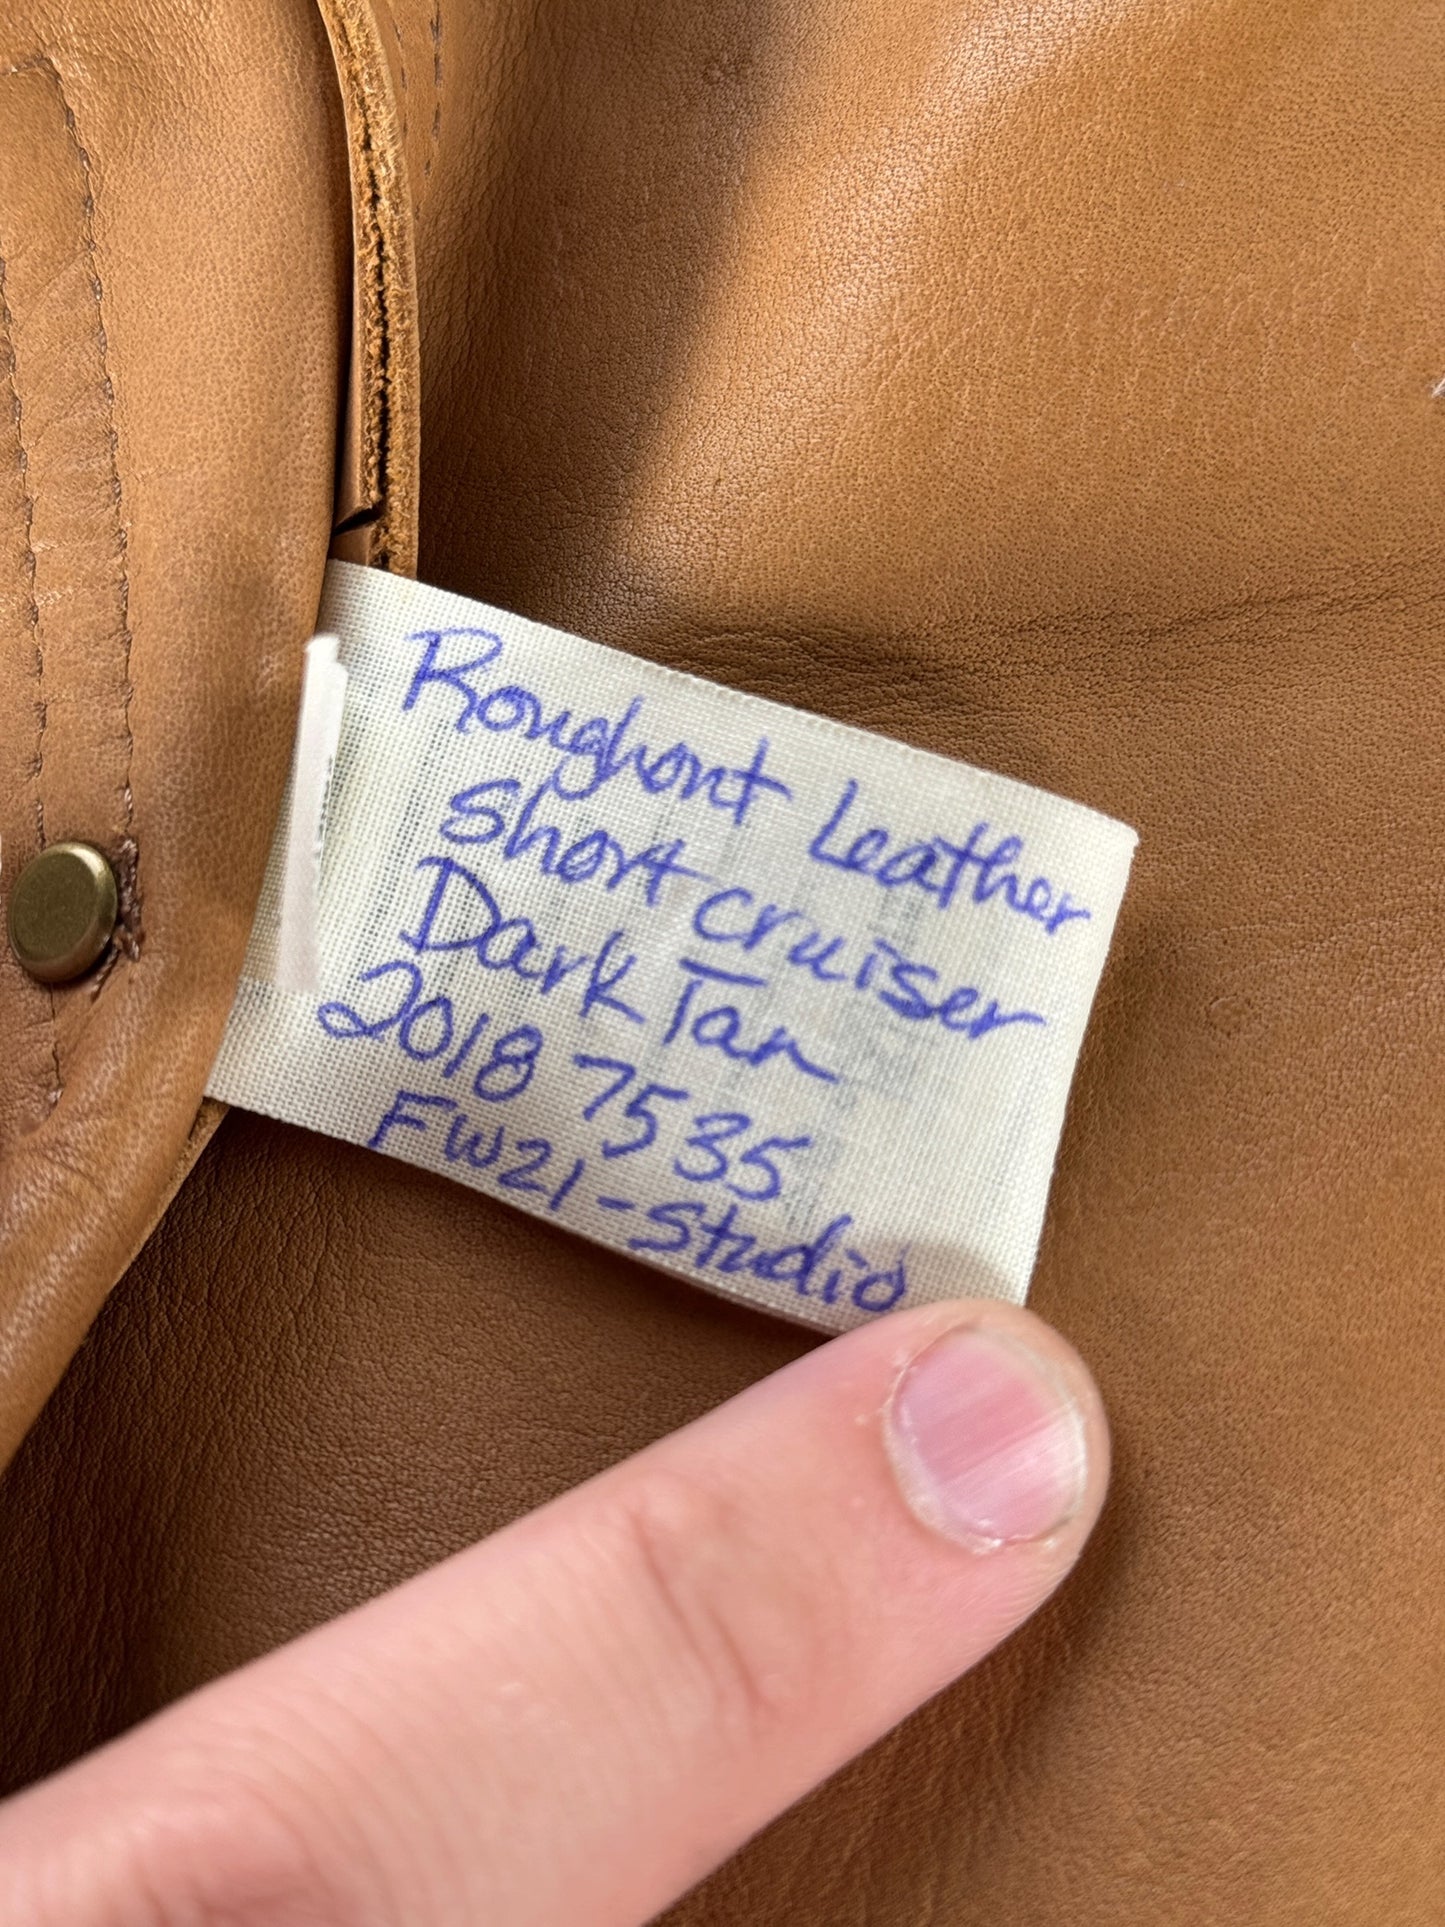 Roughout Leather
Short Cruiser
Dark Tan
2018 7535
FW21-Studio